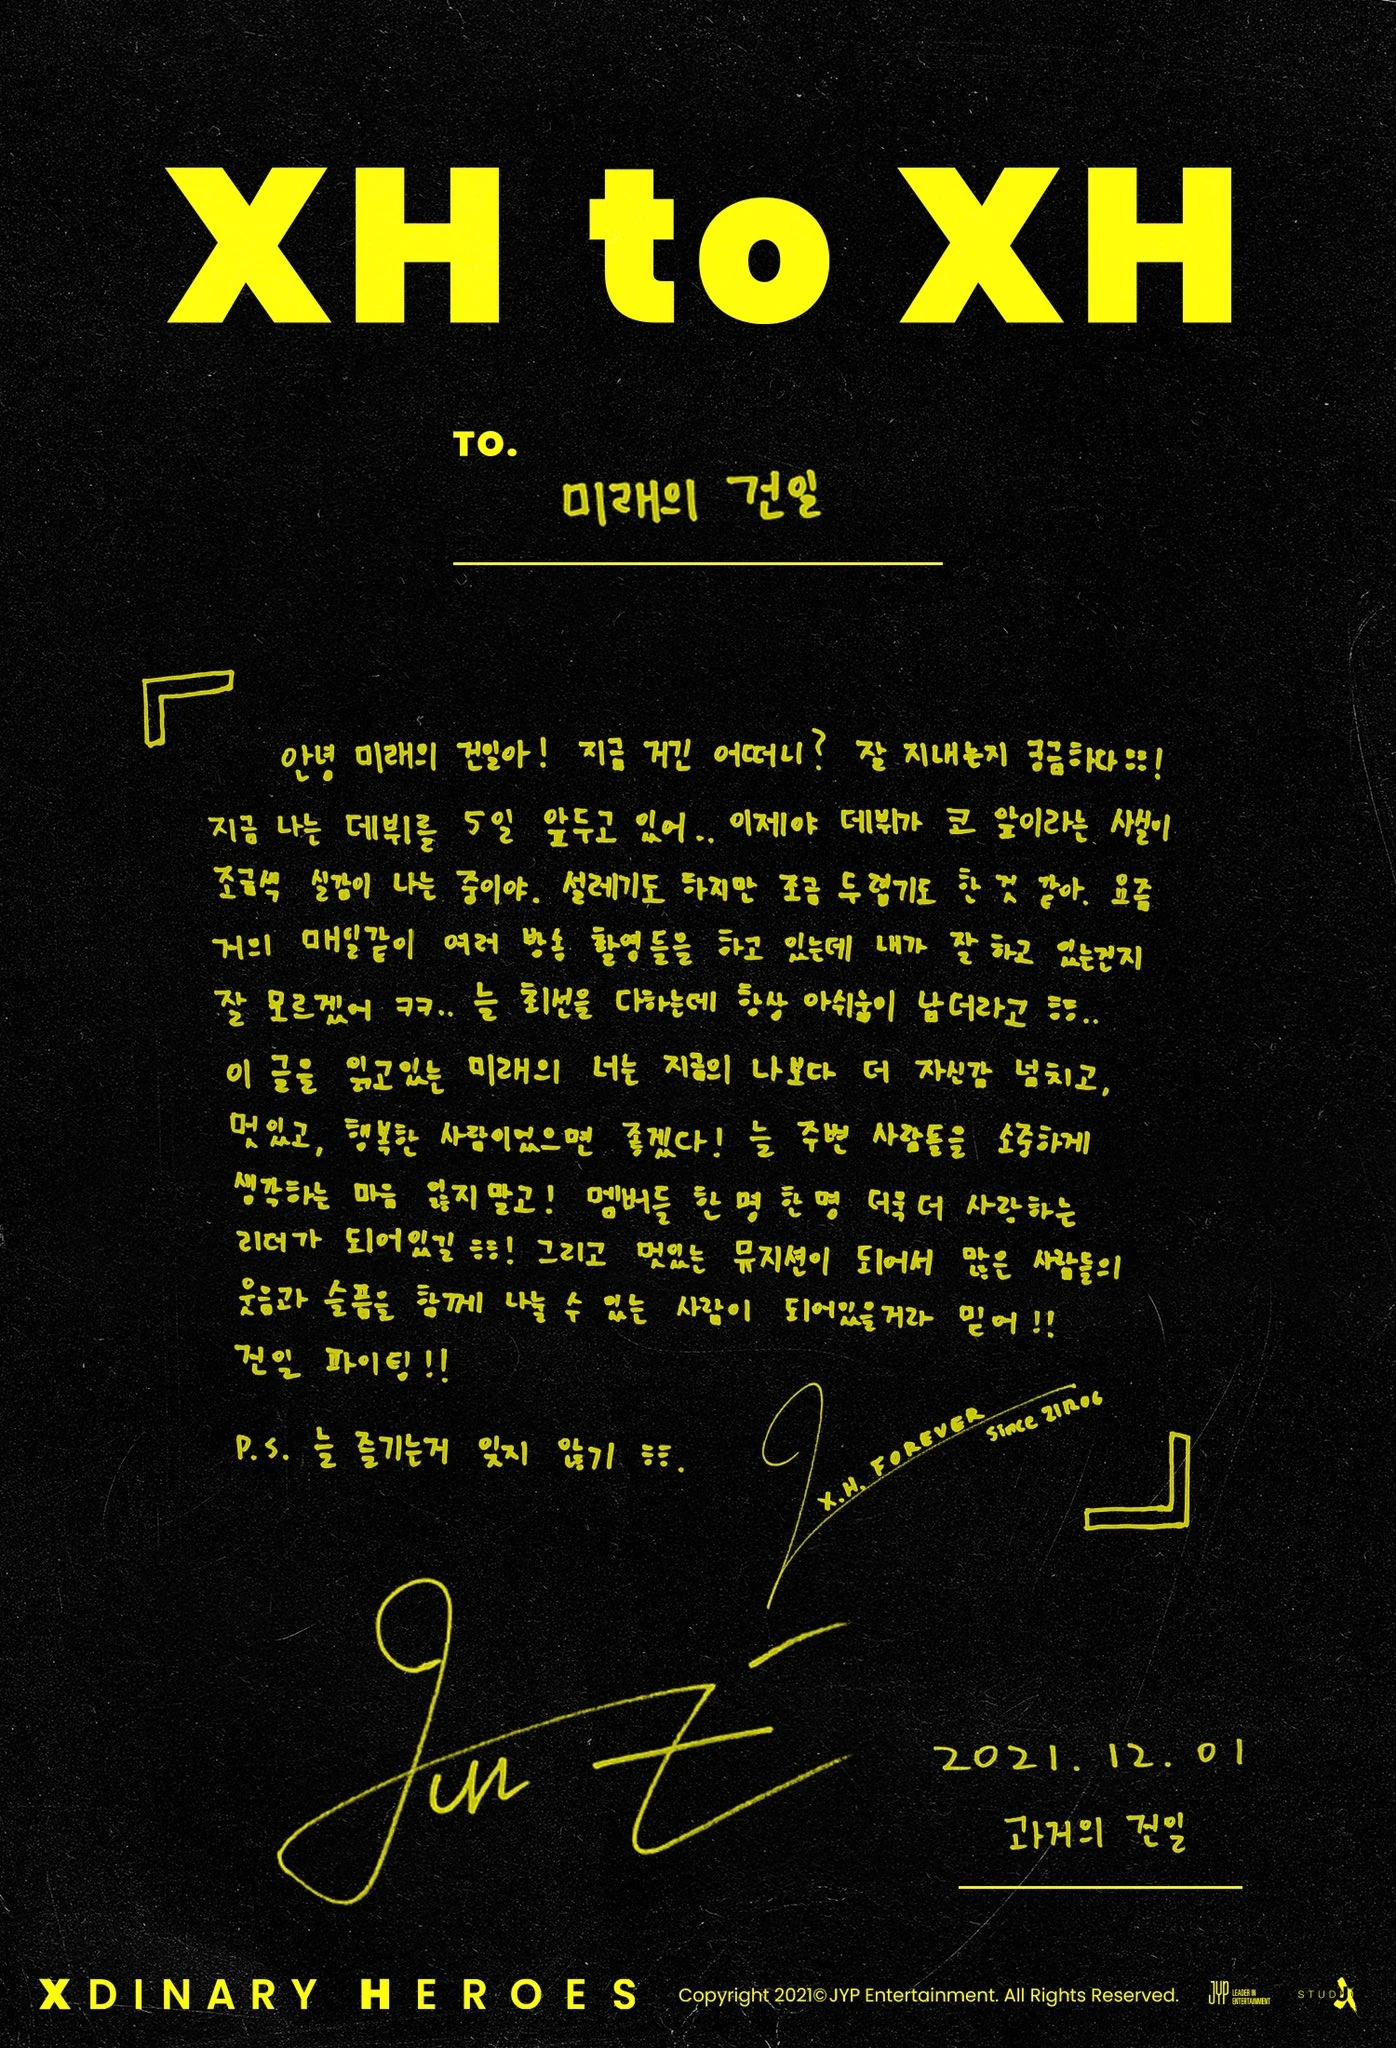 XH to XH
TO.
미래의 건일
안녕 미래의 건일아! 지금 거긴 어떠니? 잘 지내는지 궁금하다ㅎㅎ!
지금 나는 데뷔를 5일 앞두고 있어.. 이제야 데뷔가 코 앞이라는 사실이
조금씩 실감이 나는 중이야. 설레기도 하지만 조금 두렵기도 한 것 같아. 요즘
거의 매일같이 여러 방송 촬영들을 하고 있는데 내가 잘 하고 있는건지
잘 모르겠어 ㅋㅋ.. 늘 최선을 다하는데 항상 아쉬움이 남더라고 ㅎㅎ..
이 글을 읽고있는 미래의 너는 지금의 나보다 더 자신감 넘치고,
멋있고, 행복한 사람이었으면 좋겠다! 늘 주변 사람들을 소중하게
생각하는 마음 잃지말고! 멤버들 한 명 한 명 더욱 더 사랑하는
리더가 되어있길 ㅎㅎ! 그리고 멋있는 뮤지션이 되어서 많은 사람들의
웃음과 슬픔을 함께 나눌 수 있는 사람이 되어있을거라 믿어!!
건일 파이팅!!
P.S. 늘 즐기는거 잊지 않기 ㅎㅎ.
X.H. FOREVER
since 211206
2021. 12. 01
과거의 건일
XDINARY HEROES Copyright 2021©JYP Entertainment. All Rights Reserved. JYP LEADER IN ENTERTAINMENT